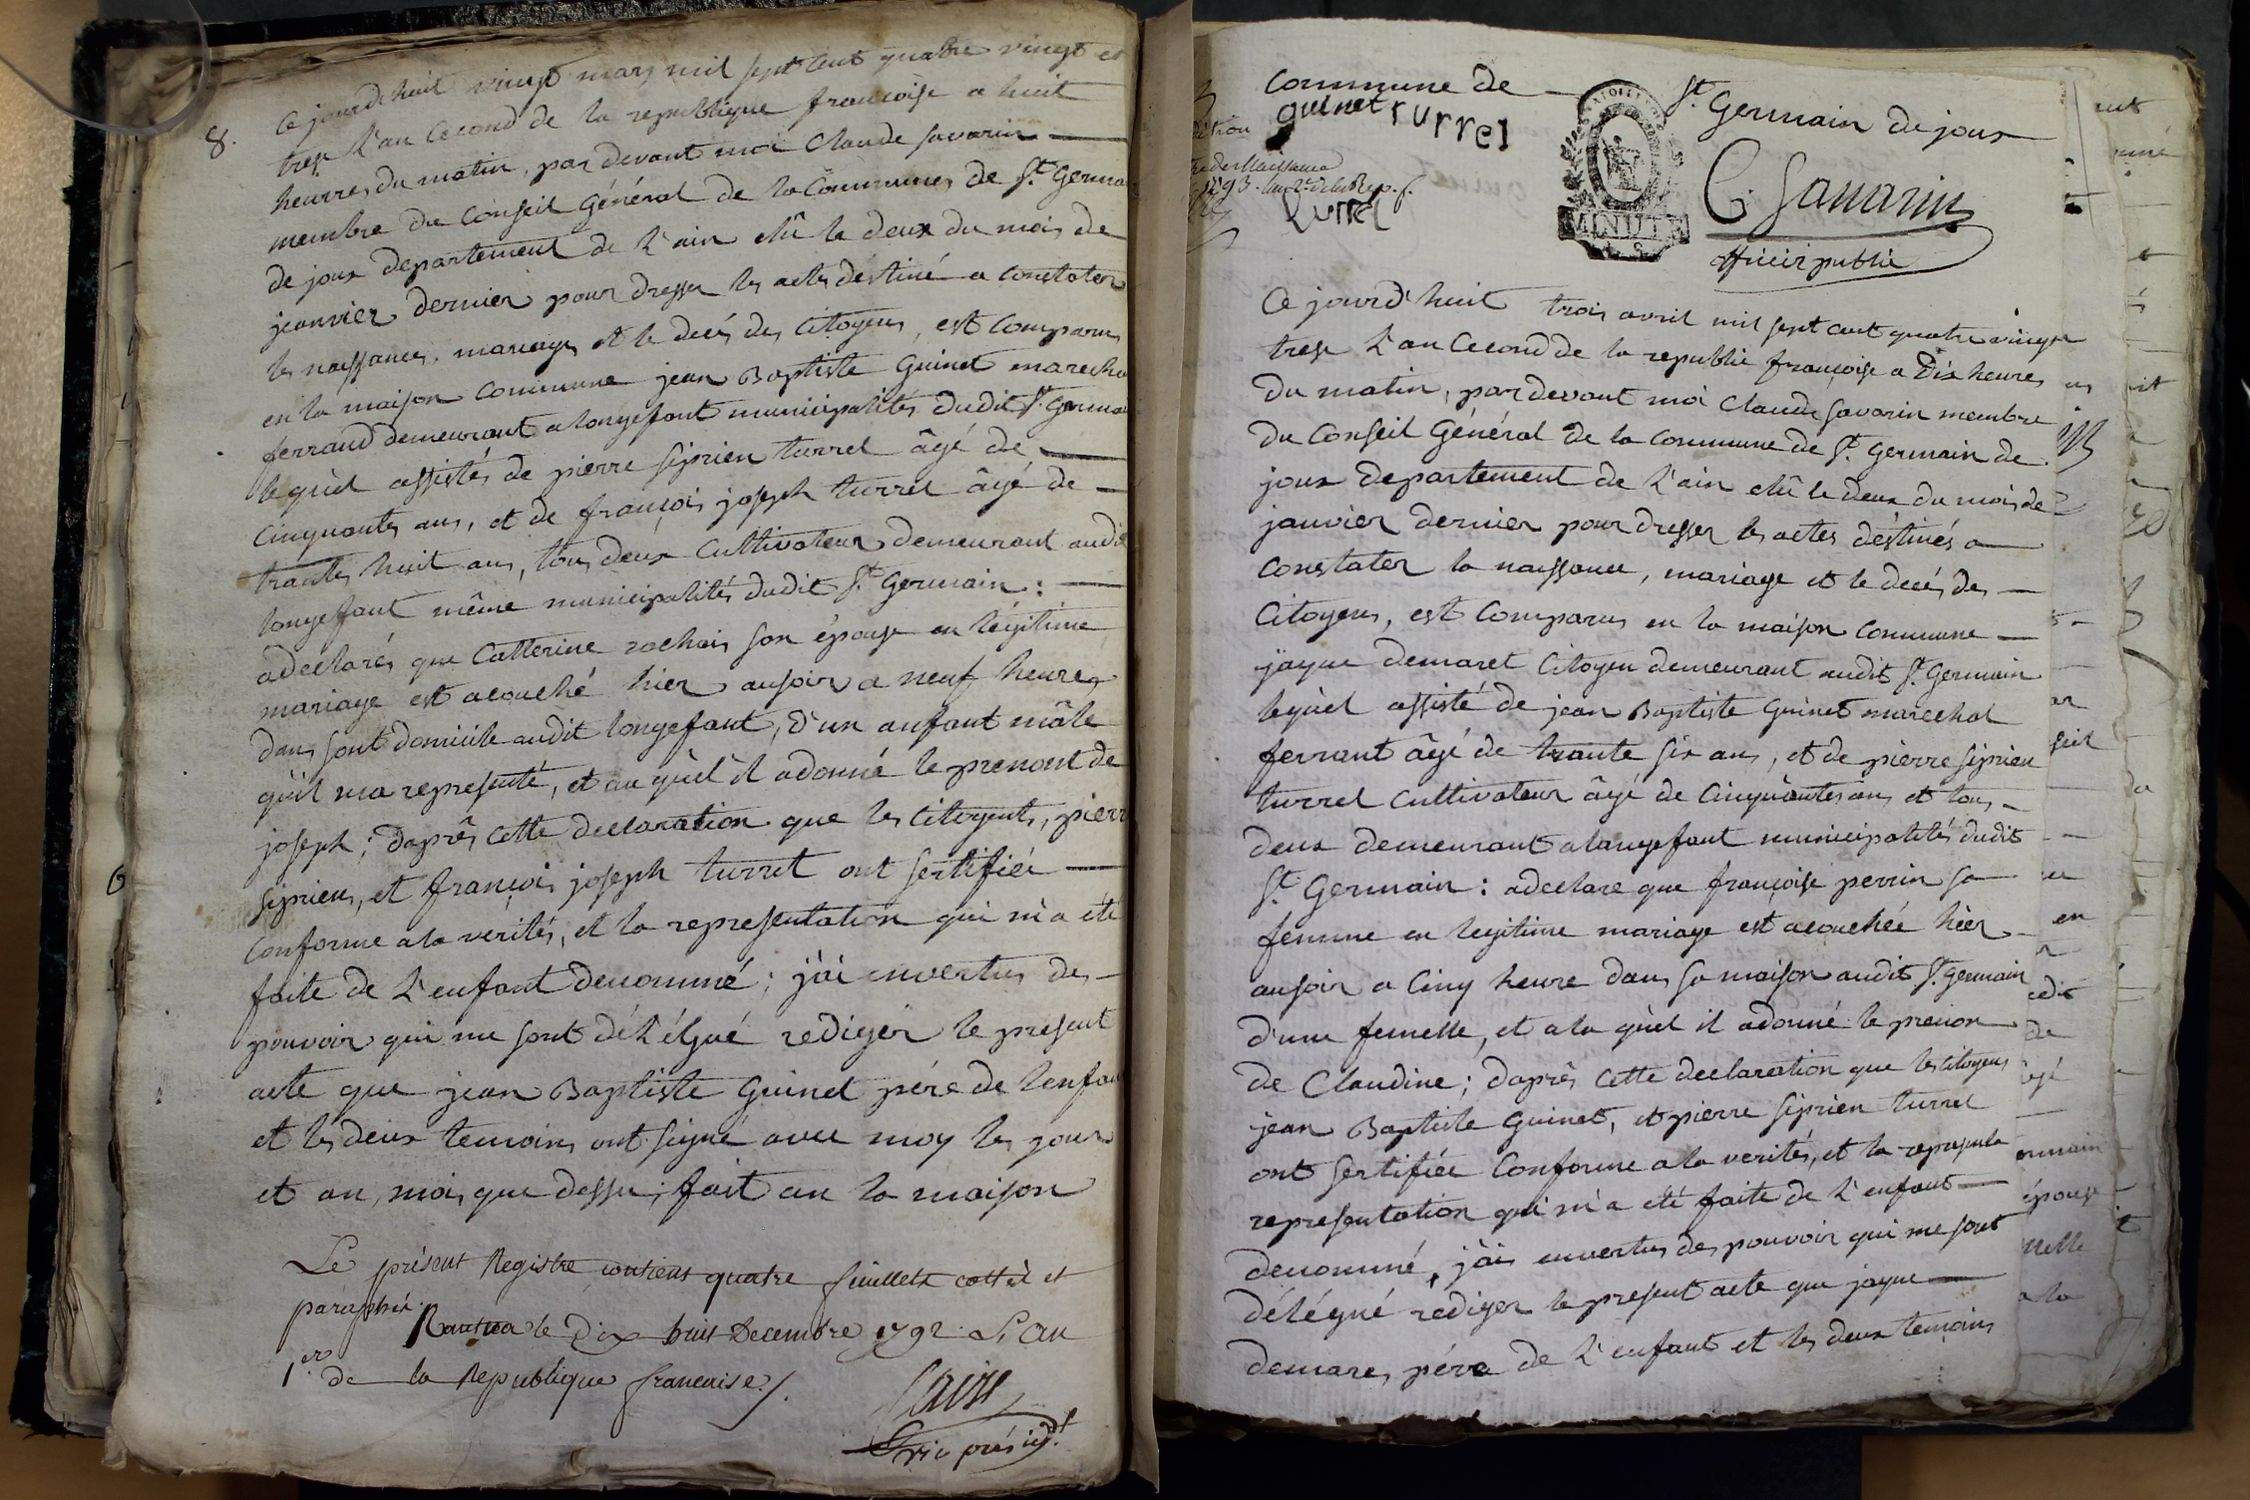 8.
Ce jourdhuit vingt mars mil sept cent quatre vingt et
trese l'an Cecond de la republique françoise a huit
heurres du matin, par devant moi Claude Savarin
membre du Conseil Général de la Commune de St. Germa
de joux departement de l'ain élû le deux du mois de
jeanvier dernier pour dresser les actes déstiné a constater
les naissances, mariages et le decés des Citoyens, est Comparus
en la maison Commune jean Baptiste Guinet marecha
ferrand demeurant a longefant municipalités dudit St. Germa
lequèl assistés de pierre siprien turrel âgé de
Cinquantes ans, et de françois joseph turrel âgé de
trantes huit ans, tous deux Cultivateur demeurant audit
longefant même municipalités dudit St. Germain :
adeclarés que Catterine rochais son épouse en légitime
mariage est acouché hier ausoir a neuf heures
dans sont domicile audit longefant, d'un anfant mâle
qu'il ma representé, et au quèl il adonné le prenomt de
joseph ; daprês cette declaration que les Citoyents, pierr
siprien, et françois joseph turrel ont sertifiée
conforme ala verités, et la representation qui m'a eté
faite de l'enfant denommé ; j'ai envertus des
pouvoir qui me sont dél'élgué rediger le present
acte que jean Baptiste Guinet pére de l'enfan
et les deux temoins ont signé avec moy les jour
et an, mois que dessu ; fait an la maison
Le présent Registre contient quatre feuillets cottés et
paraphés.
Nantua le Dix huit Decembre 1792. L'an
1er de la Republique francaise./.
présidt
Commune de
St Germain de joux
guinet turrel
turrel
MINUTE
C Savarin
officier public
Ce jourd'huit trois avril mil sept cent quatre vingt
trese l'an Cecond de la republic françoise a Dix heures
du matin, pardevant moi Claude Savarin membre
du Conseil Général de la Commune de St. Germain de
joux departement de l'ain élû le deux du mois de
janvier dernier pour dresser les actes déstinés a
constater la naissance, mariage et le decés des
Citoyens, est Comparus en la maison Commune
jaque demaret Citoyen demeurant audit St. Germain
lequèl assisté de jean Baptiste Guinet marechal
ferrant âgé de trante six ans, et de pierre siprien
turrel Cultivateur âgé de Cinquantes ans et tous
deux demeurant alongefant municipalités dudit
St. Germain : adeclare que françoise perrin sa
femme en legitime mariage est acouchée hièr
ausoir a Cinq heure dans sa maison audit St. Germain
d'une femelle, et ala quèl il adonné le prenon
de Claudine ; daprês cette declaration que les Citoyens
jean Baptiste Guinet, et pierre siprien turrel
ont sertifiée Conforme ala verités, et la represenla
representation qui m'a eté faite de l'enfant
denommé, j'ai envertus des pouvoir qui me sont
délégué rediger le present acte que jaque
demare, pére de l'enfant et les deux temoins